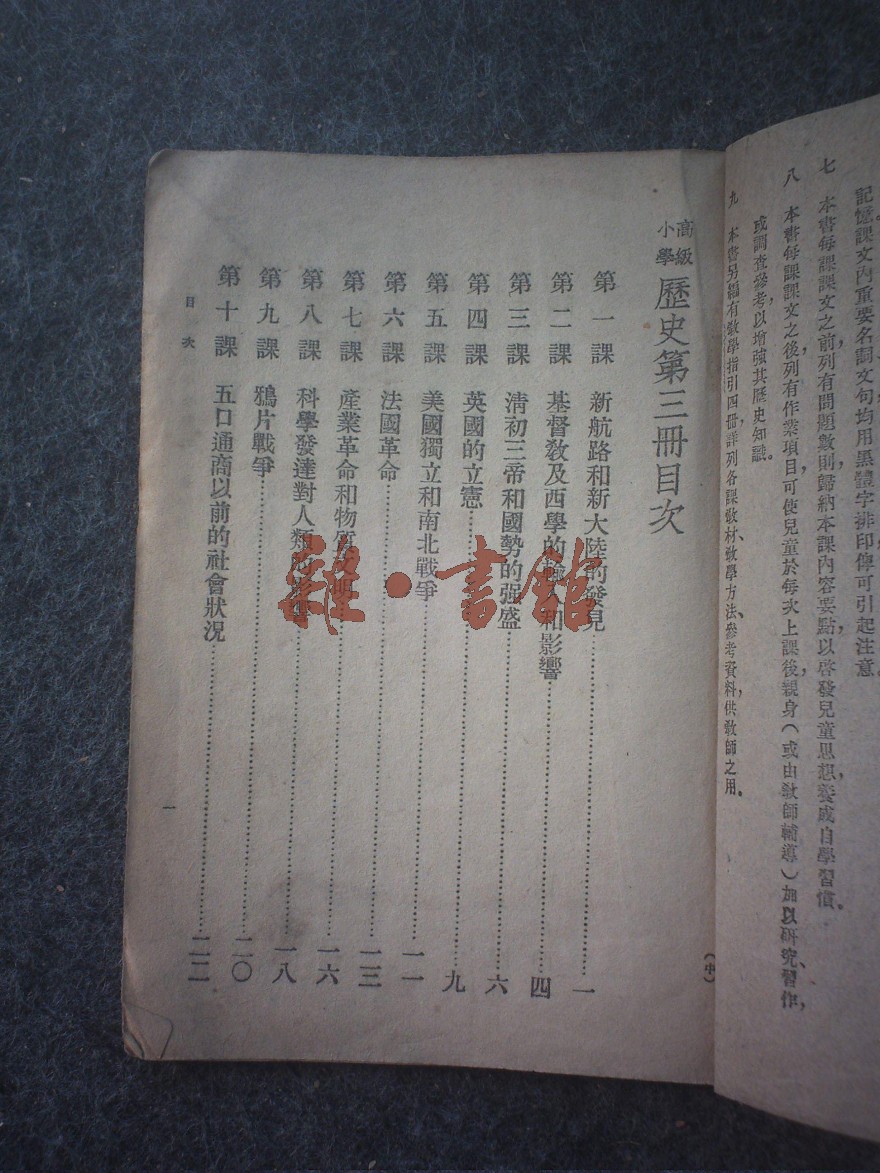 記憶課文內重要名詞文句均用黑體字排印俾可引起注意。
七　本書每課課文之前列有問題數則歸納本課內容要點以啓發兒童思想養成自學習慣。
八　本書每課課文之後列有作業項目可使兒童於每次上課後親身(或由教師輔導)加以研究、習作、
或調查參考以增強其歷史知識。
九　本書另編有教學指引四冊詳列各課教材、教學方法、參考資料供教師之用。
高級小學 歷史第三冊目次
第一課　新航路和新大陸的發見……一
第二課　基督教及西學的輸入和影響……四
第三課　清初三帝和國勢的强盛……六
第四課　英國的立憲……九
第五課　美國獨立和南北戰爭……一一
第六課　法國革命……一三
第七課　產業革命和物質文明……一六
第八課　科學發達對人類的影響……一八
第九課　鴉片戰爭……二〇
第十課　五口通商以前的社會狀况……二二
目次
一
雜·書館